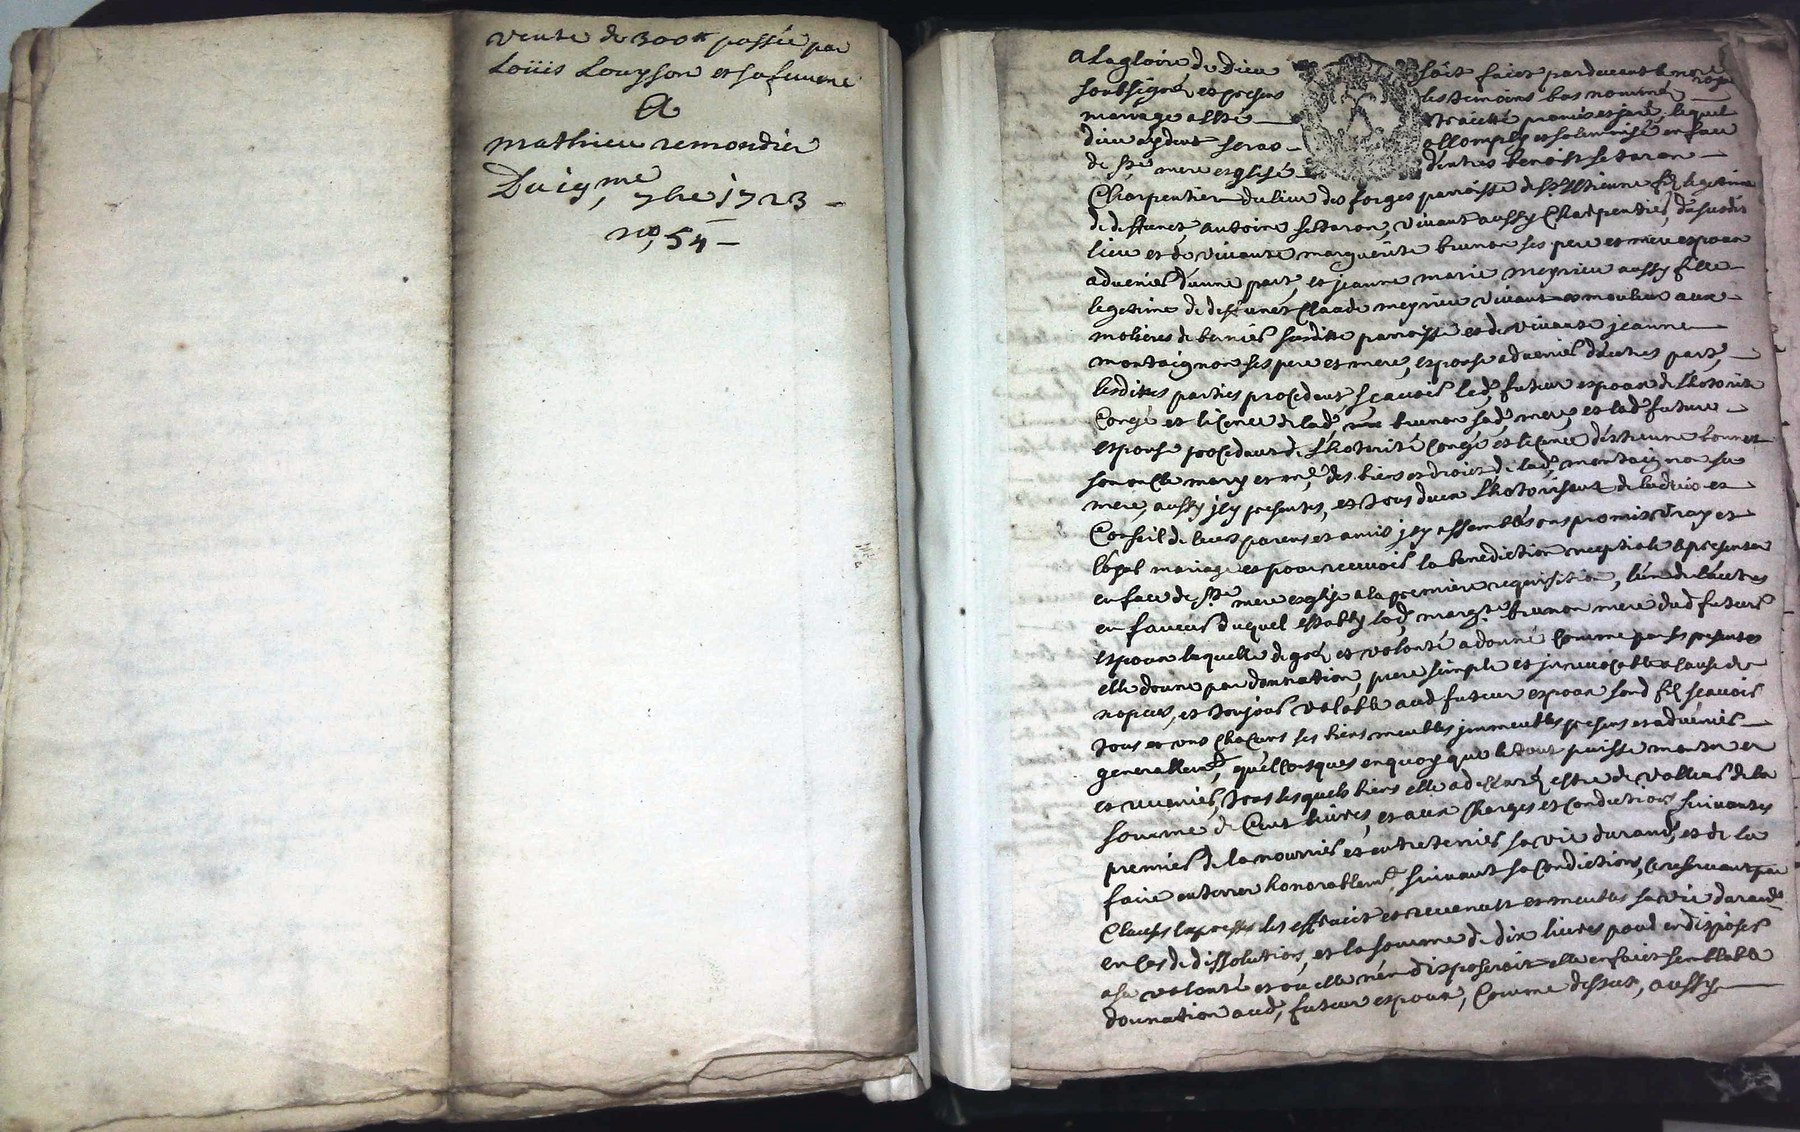 vente de 300tt passée par
Loüis Louyson et sa femme
A
mathieu remondier
Du 19me 7bre 1723
no 54
A la gloire de Dieu soit faict pardevant le nore royal
soubsigné et presens les temoins bas nommés
mariage a esté traicté promis et juré, lequel
dieu aydant sera accomply et solemnisé en face
de Ste mere esglise d'entre benoist setaron
Charpentier du lieu des forges parroisse de St Estienne fils legitime
de deffunct antoine setaron, vivant aussy Charpentier, dudit
lieu et de vivante marguerite brunon ses pere et mere espoux
advenir d'une part, et jeanne marie meyrieu aussy fille
legitime de deffunct Claude meyrieu vivant moulier aux
molieres de parroisse et de vivante jeanne
montaignon ses pere et mere, espouse advenir d'autre part,
lesdites parties procedant scavoir led, futur espoux de l'hotorité
Congé et licence de lad, brunon sad, mere, et lad, future
espouse procedant de l'hotorité congé et licence d'estienne bonnet
son oncle mary et me des biens et droict de lad, montaignon sa
mere, aussy jcy presentes, et tous deux l'hotorisant de l'advis et
Conseil de leurs parens et amis jcy assemblés ont promis vray et
légal mariage et pour recevoir la benediction nuptiale se presenter
en face de Ste mere esglise a la premiere requisition, l'un de l'autre
en faveur duquel establye lad, margte brunon mere dud futur
espoux laquelle de gré et volonté a donné comme par ses presentes
elle donne par donnation, pure simple et jrrevocable a cause de
nopces, et toujour valable aud futur espoux sond fils scavoir
tous et uns chacuns ses biens meubles jmmeubles presens et advenir
generallemt, quelconsques en quoy que le tout puisse monter et
et revenir, tous lesquels biens elle a declaré estre de valleur de la
somme de Cent livres, et aux Charges et condictions suivantes
premier de la nourrir et entretenir sa vie durand, et de la
faire enterrer honorablemt, suivant sa condiction, ce reservant par
Clause expresse les et revenust et meubles sa vie durand
en cas de dissolution, et la somme de dix livres pour en disposer
a sa volonté et ou elle n'en disposeroit elle en faict semblable
donnation aud, futur espoux, comme dessus, aussy